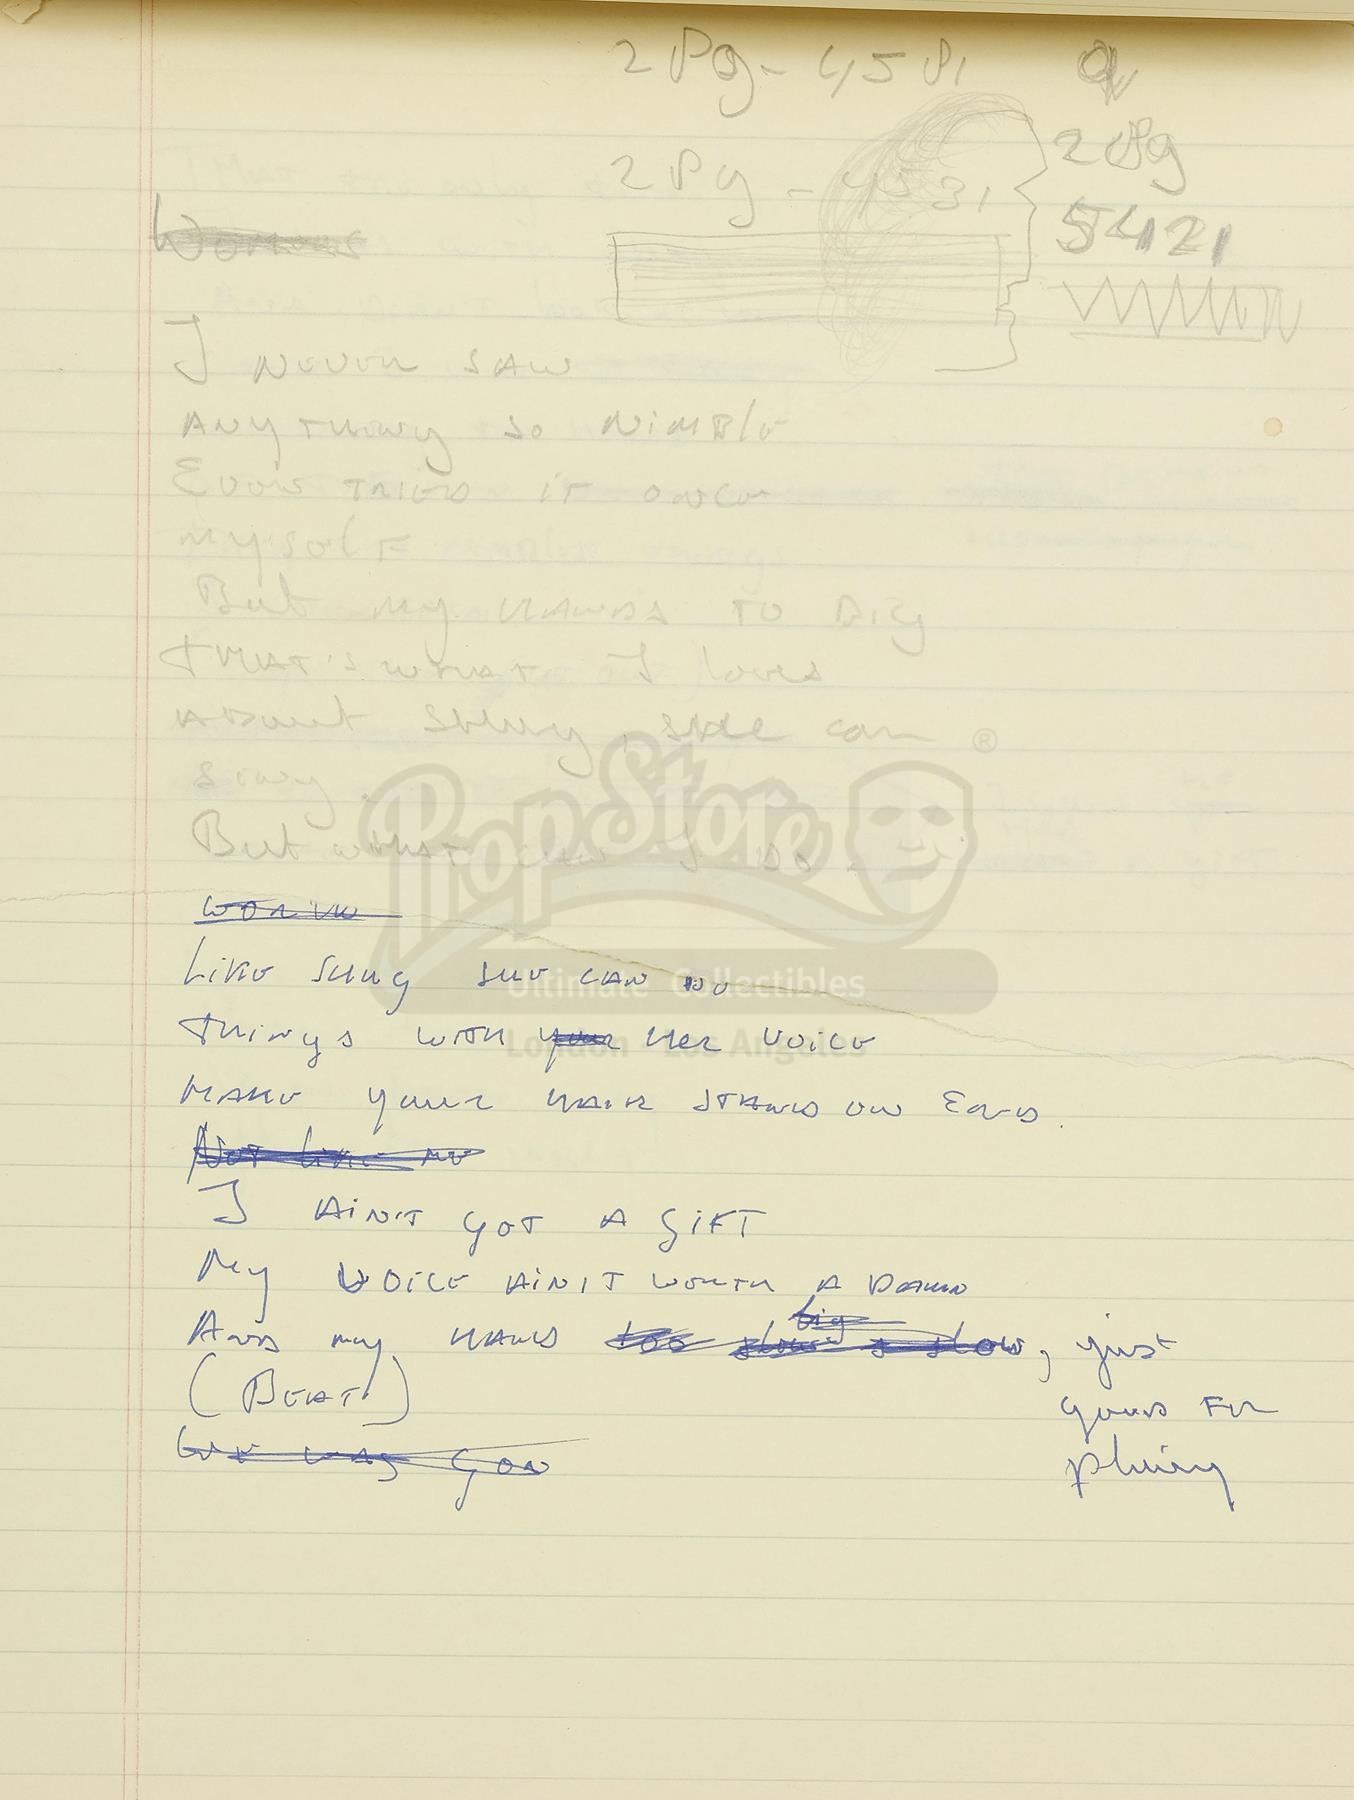 2Pg - 4581
2Pg - 4531
2Pg
5421
I never saw
Anything so nimble
Even tried it once
myself
But my hands to big
That's what I loves
About
can
sing.
But what can I do.
Like she can do
Things with your her voice
Make your hair stand on end.
Not like me
I ain't got a gift
My voice ain't worth a damn
big
And my hands too slow, just
(Beat)
good for
PropStore ®
Ultimate Collectibles
London - Los Angeles